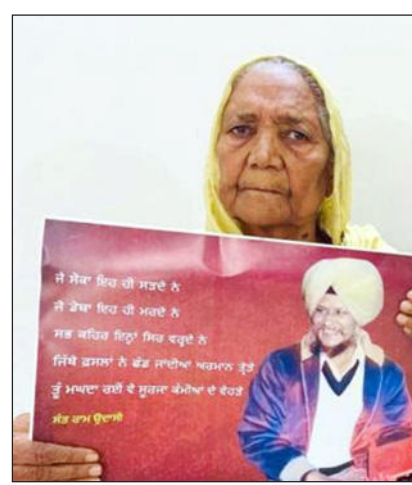 ਜੇ ਸੋਕਾ ਇਹ ਹੀ ਸੜਦੇ ਨੇ
ਜੇ ਡੋਬਾ ਇਹ ਹੀ ਮਰਦੇ ਨੇ
ਸਭ ਕਹਿਰ ਇਨ੍ਹਾਂ ਸਿਰ ਵਰ੍ਹਦੇ ਨੇ
ਜਿੱਥੇ ਫ਼ਸਲਾਂ ਨੇ ਛੱਡ ਜਾਂਦੀਆਂ ਅਰਮਾਨ ਤ੍ਰੇੜੇ
ਤੂੰ ਮਘਦਾ ਰਈਂ ਵੇ ਸੂਰਜਾ ਕੰਮੀਆਂ ਦੇ ਵੇਹੜੇ
ਸੰਤ ਰਾਮ ਉਦਾਸੀ